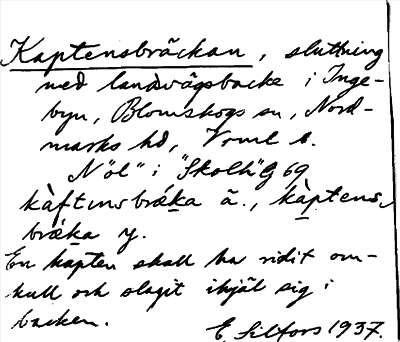 Kaptensbräckan, sluttning
ned landsvägsbacke i Inge-
byn, Blomskogs sn, Nord-
marks hd, Vrml l.
N "öl" i "Skolh" G 69
kàftɩnsbrǽka ä., kàptens-
brǽka y.
En kapten skall ha ridit om-
kull och slagit ihjäl sig i
backen.
E. Silfors 1937.